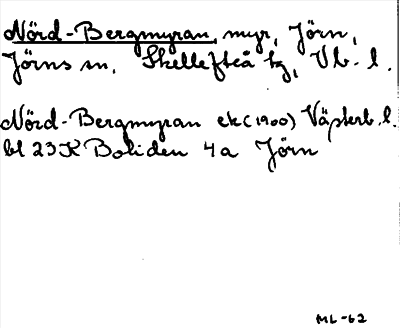 Nörd-Bergmyran, myr, Jörn,
Jörns sn, Skellefteå tg, Vb. l.
Nörd-Bergmyran ek (1900) Västerb. l.
bl 23K Boliden 4a Jörn
ML-62